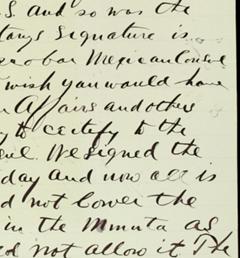 S. and so was the
tarys Signature is
Mexican Consul
wish you would have
Affairs and others
to certify to the
We Signed the
day and now all is
d not Cover the
in the Minuta as
not allow it The